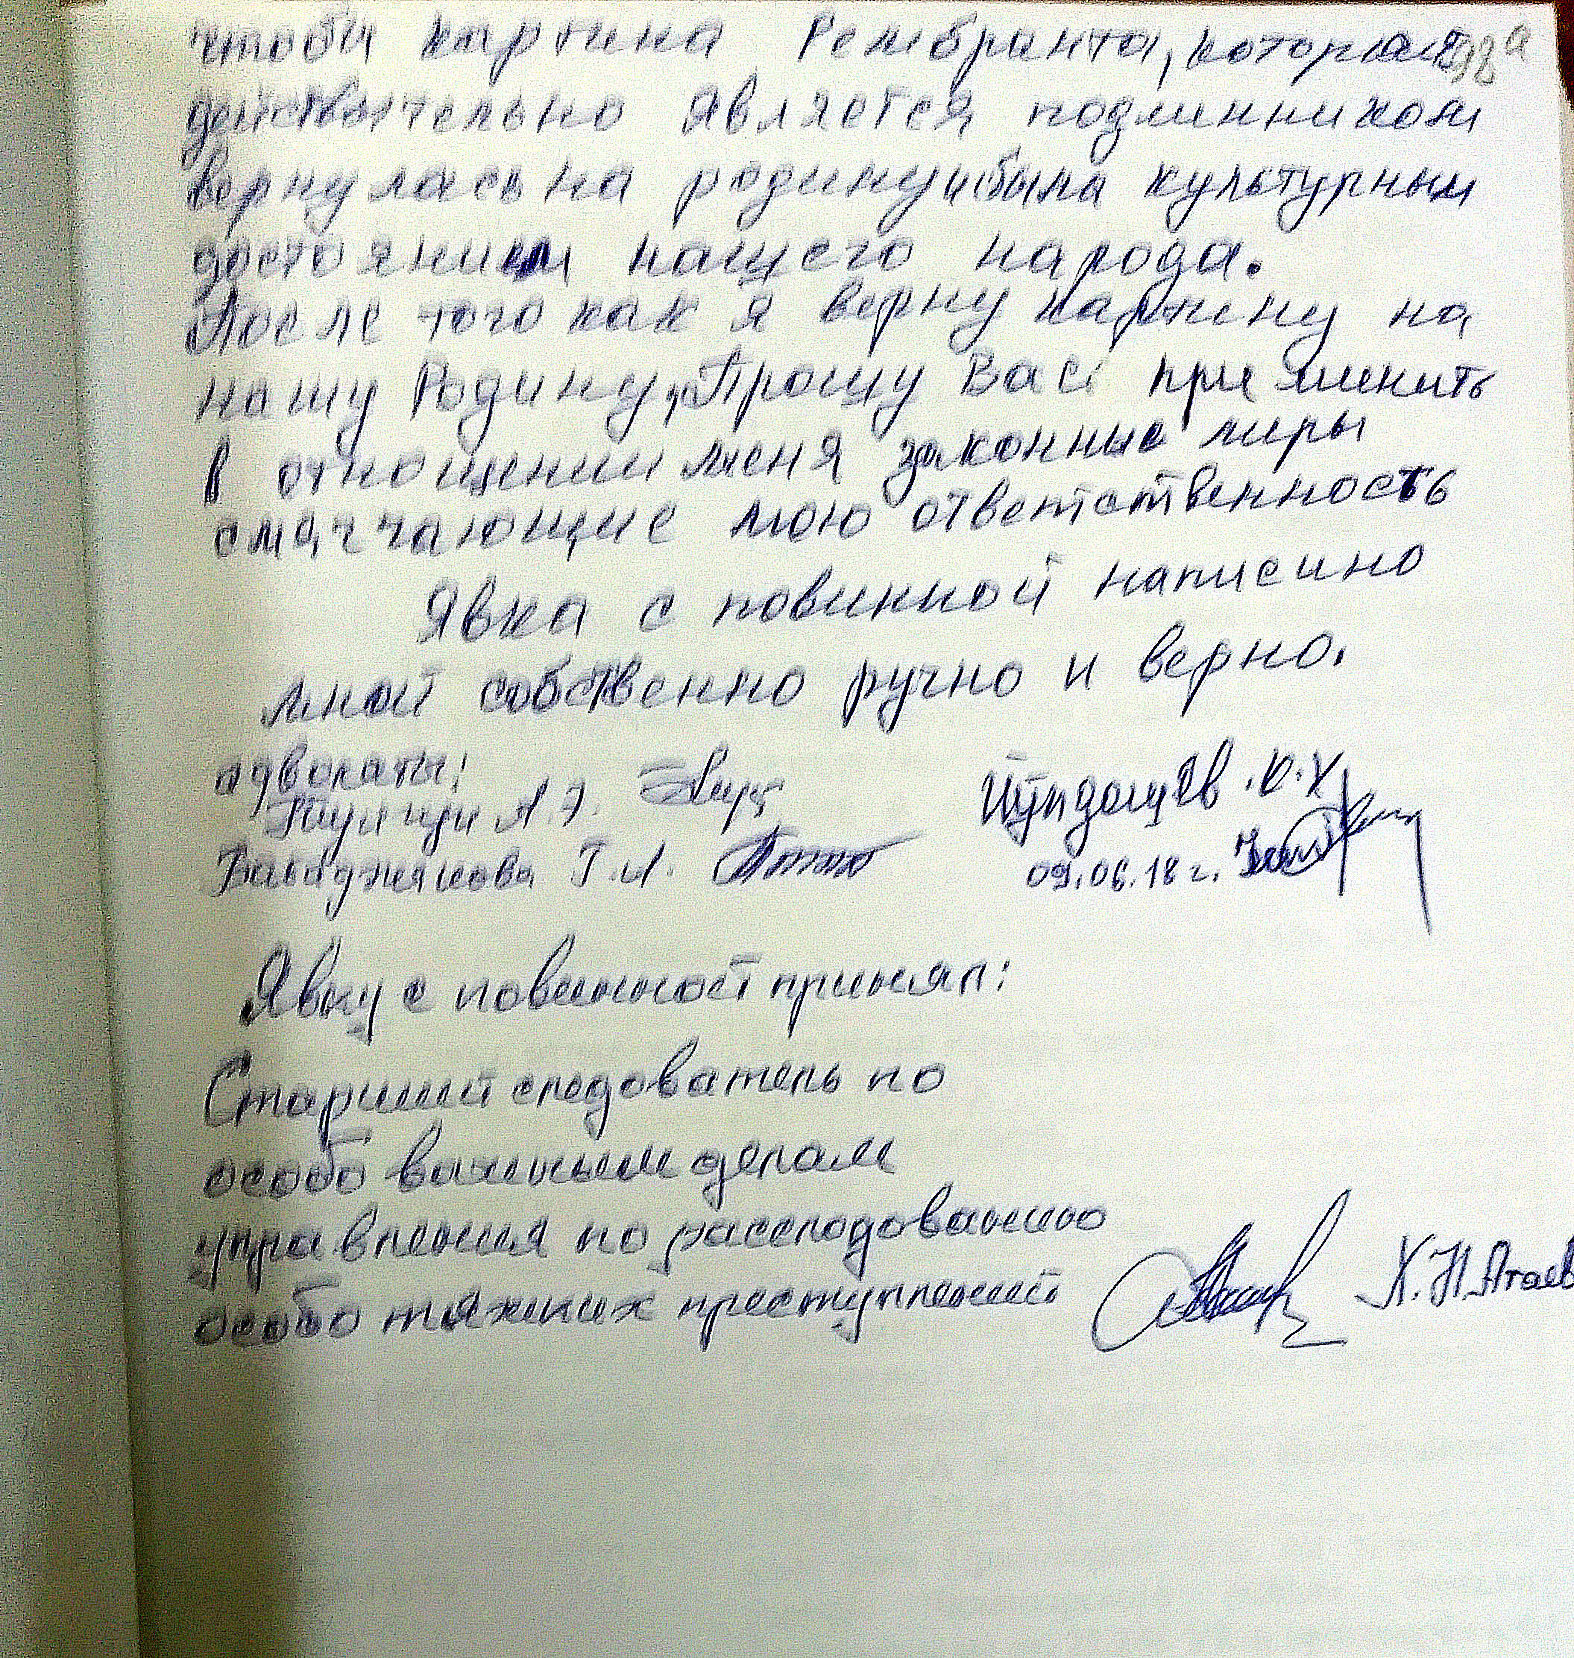 чтоби картина Рембранта, которая
действительно является подлинником
вернулась на родину и была культурным
достоянием нашего народа.
После того как я верну картину на
нашу Родину, Прошу Вас применить
в отношении меня законные меры
смягчающие мою ответственность
Явка с повинной написино
мной собственно ручно и верно.
адвокаты:
А.Э. Йўлдошев .Ю.Х
Г.А. 09.06.18 г.
Явку с повинной принял:
Старший следователь по
особо важным делам
управления по расследованию
особо тяжких преступлений Х.Н. Атаев